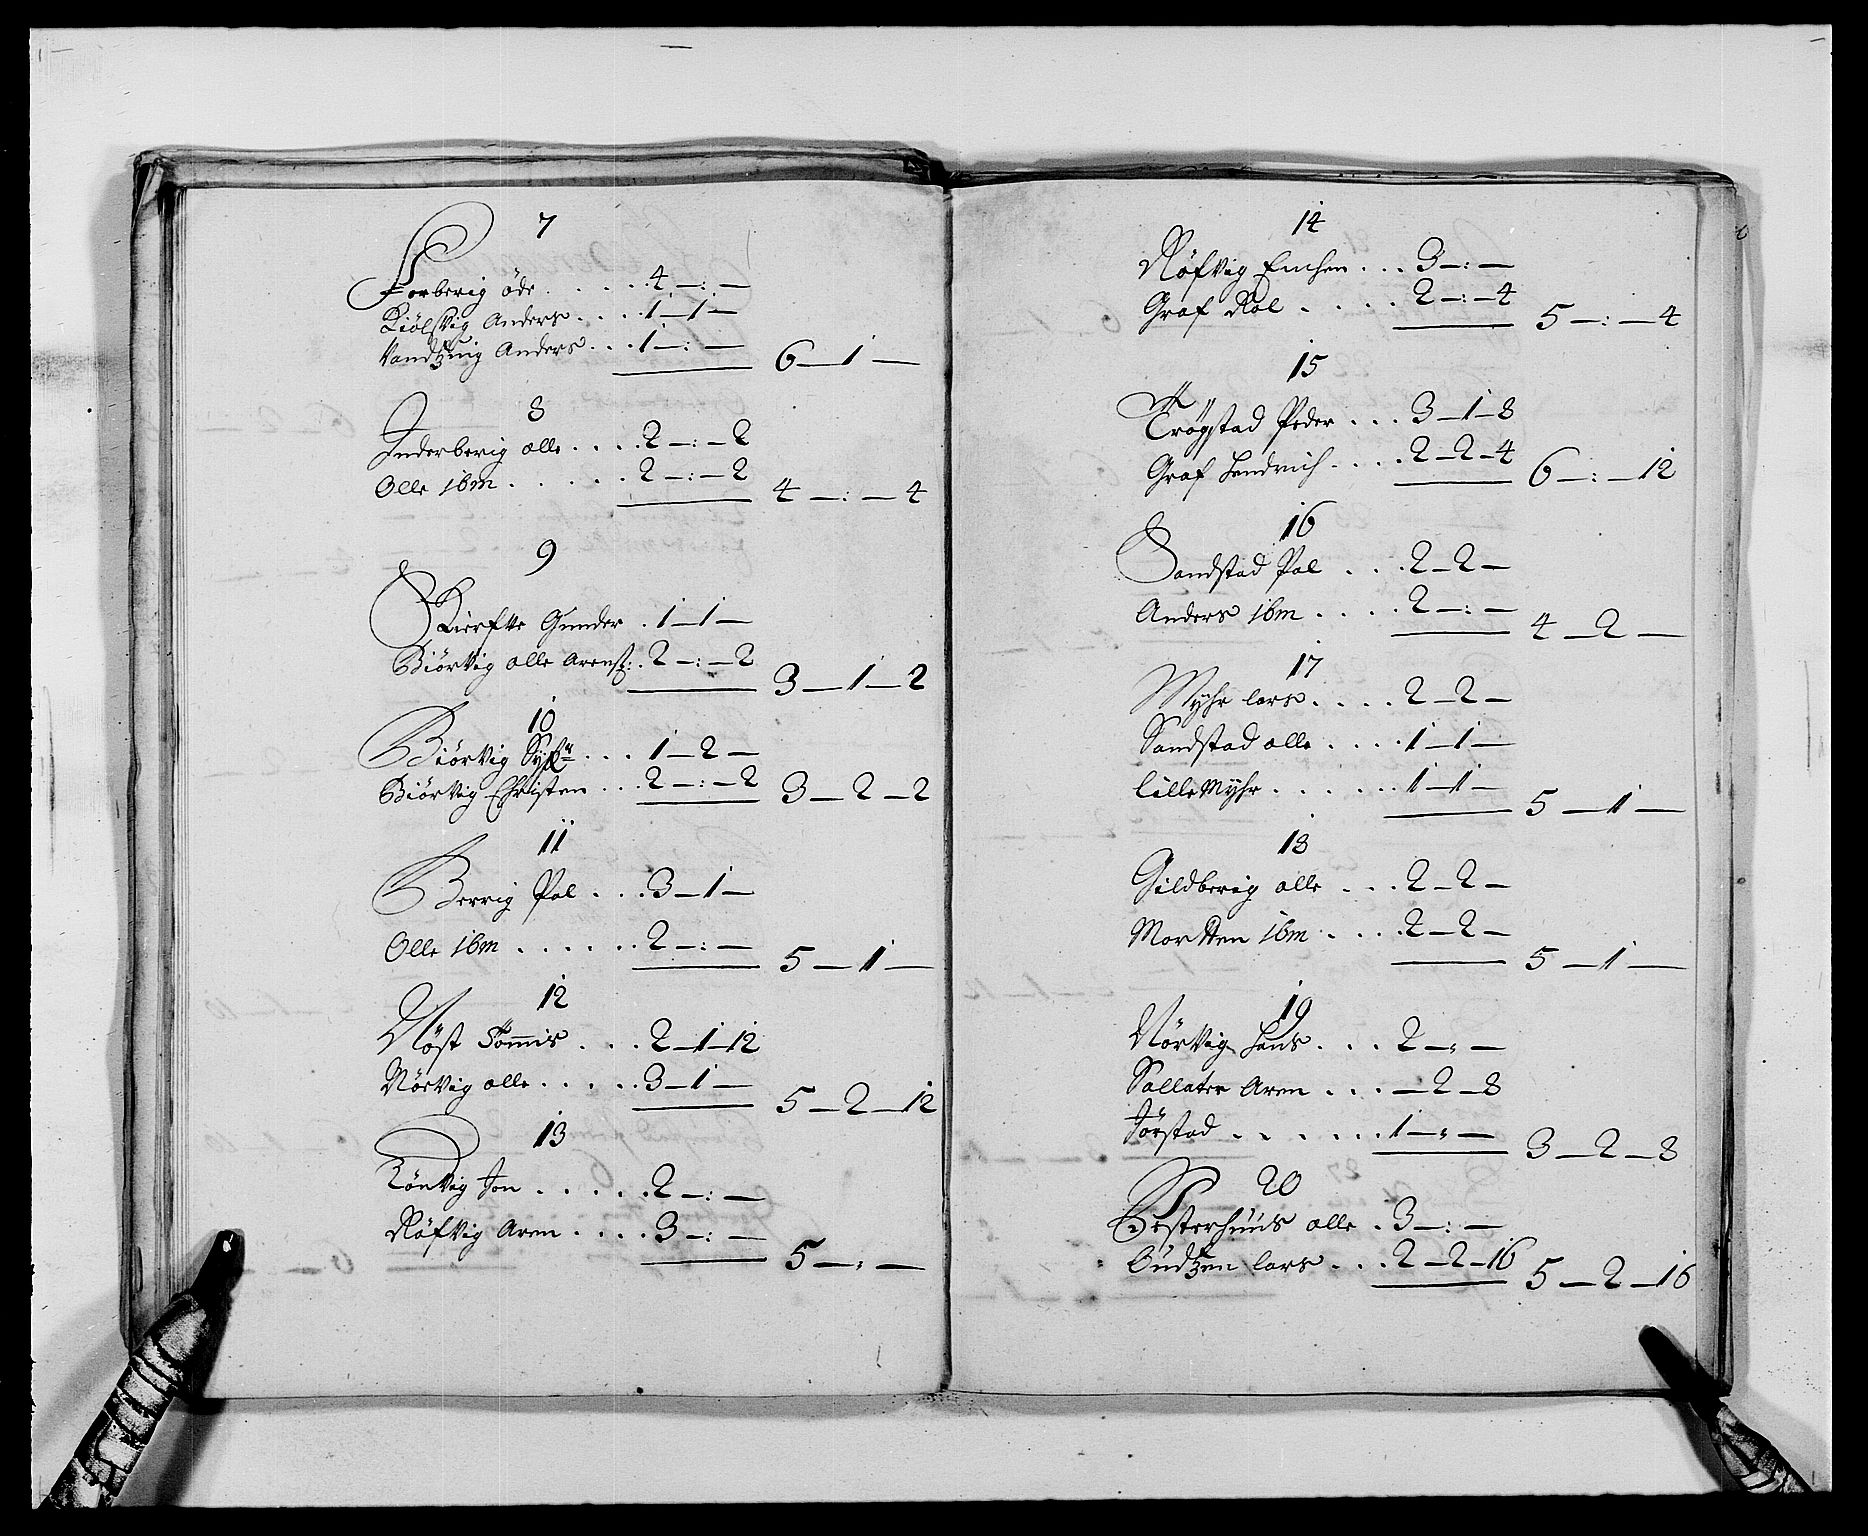 7
Forberig öde . . . . . 4 –:–
Kiölsvig Anders . . . . 1–1–
Vandzuig Anders . . . 1–:– 6–1–
8
Inderberig olle . . . . 2–:–2
Olle ibm . . . . . . 2–:–2 4–:–4
9
Skierfte Gunder . 1–1–
Biörvig olle Arens: . 2–:–2 3–1–2
10
Biörvig . . . 1–2–
Biörvig Christen . . . 2–:–2 3–2–2
11
Berrig Pol . . . 3–1–
Olle ibm . . . . . . 2–:– 5–1–
12
Nöst Tommis . . . 2–1–12
Nörvig olle . . . . . 3–1– 5–2–12
13
Rönvig Jon . . . . . 2–:–
Röfvig Aren . . . . 3–:– 5–:–
14
Röfvig . . . 3–:–
Graf Rol . . . . . 2–:–4 5–:–4
15
Trögstad Peder . . . 3–1–8
Graf Hendrich . . . . 2–2–4 6–:–12
16
Sandstad Pol . . . 2–2–
Anders ibm . . . . 2–:– 4–2–
17
Myhr lars . . . . 2–2–
Sandstad olle . . . . 1–1–
lille Myhr . . . . . . 1–1– 5–1–
18
Gildberig olle . . . 2–2–
Mortten ibm . . . . 2–2– 5–1–
19
Nörvig Hans . . . 2–:–
Sallater Aren . . . –2–8
Jörstad . . . . . . 1–:– 3–2–8
20
Oesterhuus olle . 3–:–
Oudzen lars . . . 2–2–16 5–2–16